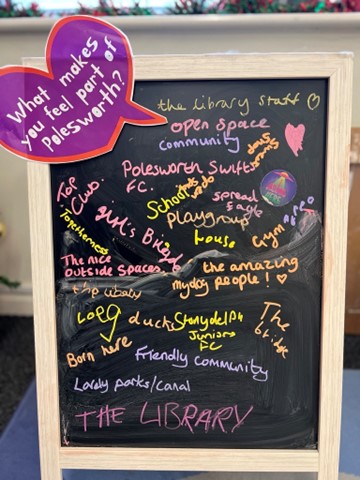 What makes
you feel part of
Polesworth?
the library staff
open space
community
Polesworth Swifts
FC.
Top
Club.
School
playgroup
spread
eagle
Togetherness
girl's
house
Gym
The nice
outside spaces
the amazing
mydog people!
the library
LOEG
ducks
Stonydelph
Juniors
FC
The
bridge
Born here
Friendly community
Lovely parks/canal
THE LIBRARY